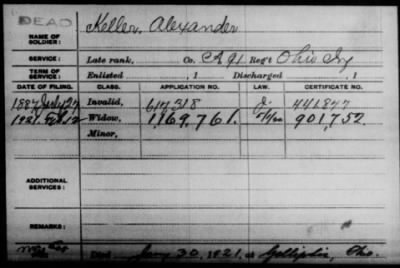 DEAD
NAME OF SOLDIER: Keller, Alexander
SERVICE: Late rank, Co. A 91 Reg't Ohio Inf
TERM OF SERVICE: Enlisted , 1 Discharged , 1
DATE OF FILING. CLASS. APPLICATION NO. LAW. CERTIFICATE NO.
1887 July 27 Invalid, 617,318 441,877
1921 Feb 12 Widow, 1,169,761. 901,752.
Minor,
ADDITIONAL SERVICES:
REMARKS:
Died Jany 30, 1921, at Gallipolis, Oho.